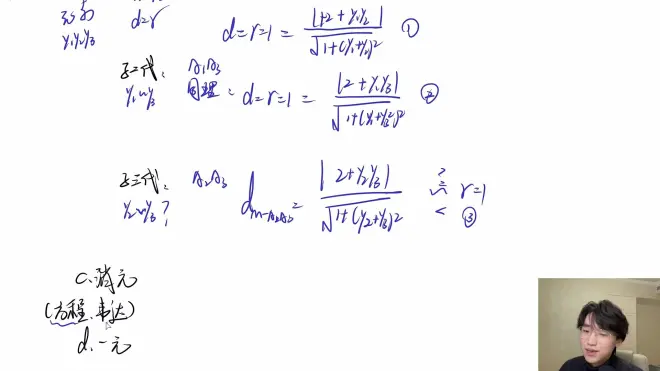 d=r
y₁y₂y₃
d=r=1= |2+y₁y₂| / √1+(y₁+y₂)² ①
第二代: A₁A₃
y₁ y₃ 同理: d=r=1= |2+y₁y₃| / √1+(y₁+y₃)² ②
第三代: A₂A₃
y₂ y₃? d_M-A₂A₃= |2+y₂y₃| / √1+(y₂+y₃)² r=1
< ③
c.消元
(方程.表达)
d.一元